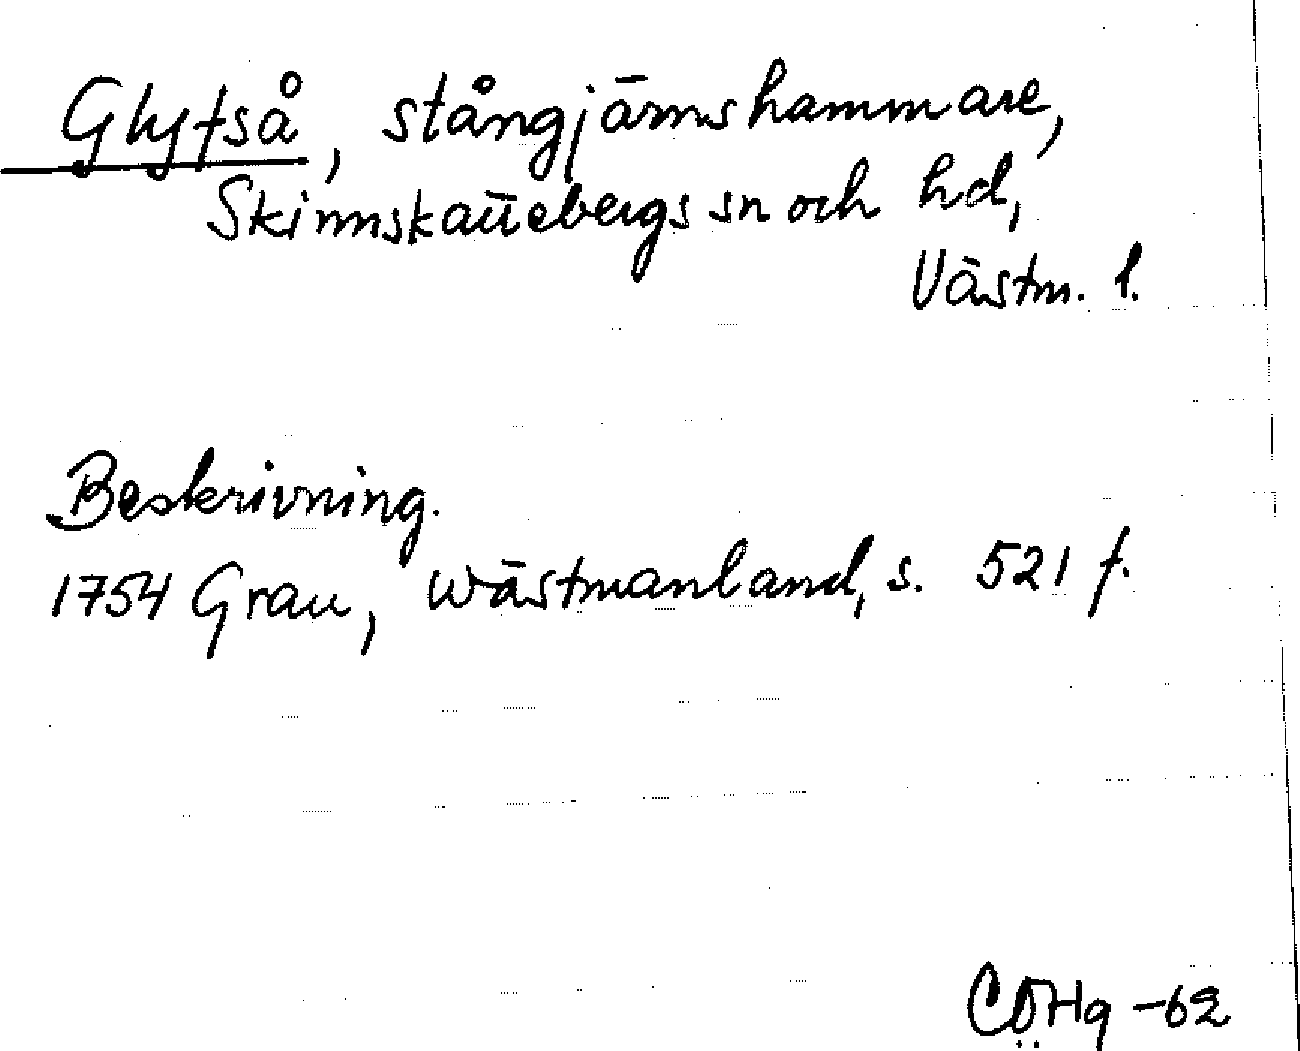 Glytså, stångjärnshammare,
Skinnskattebergs sn och hd,
Västm. l.
Beskrivning.
1754 Grau, Wästmanland, s. 521 f.
CÖHg -62